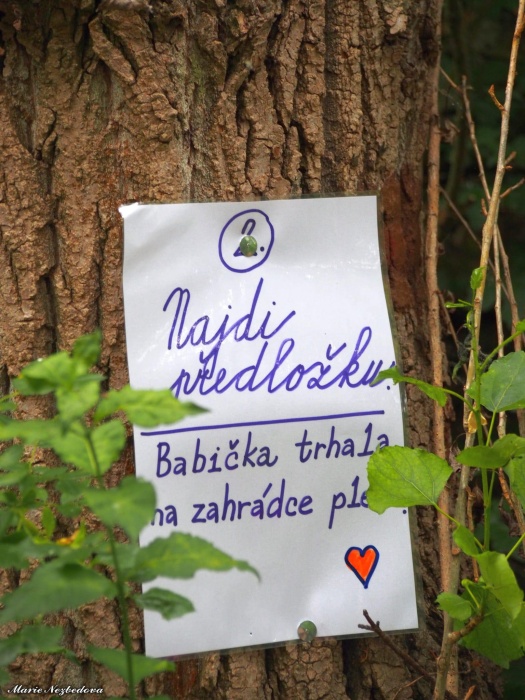 2.
Najdi
předložku:
Babička trhala
na zahrádce
Marie Nezbedova